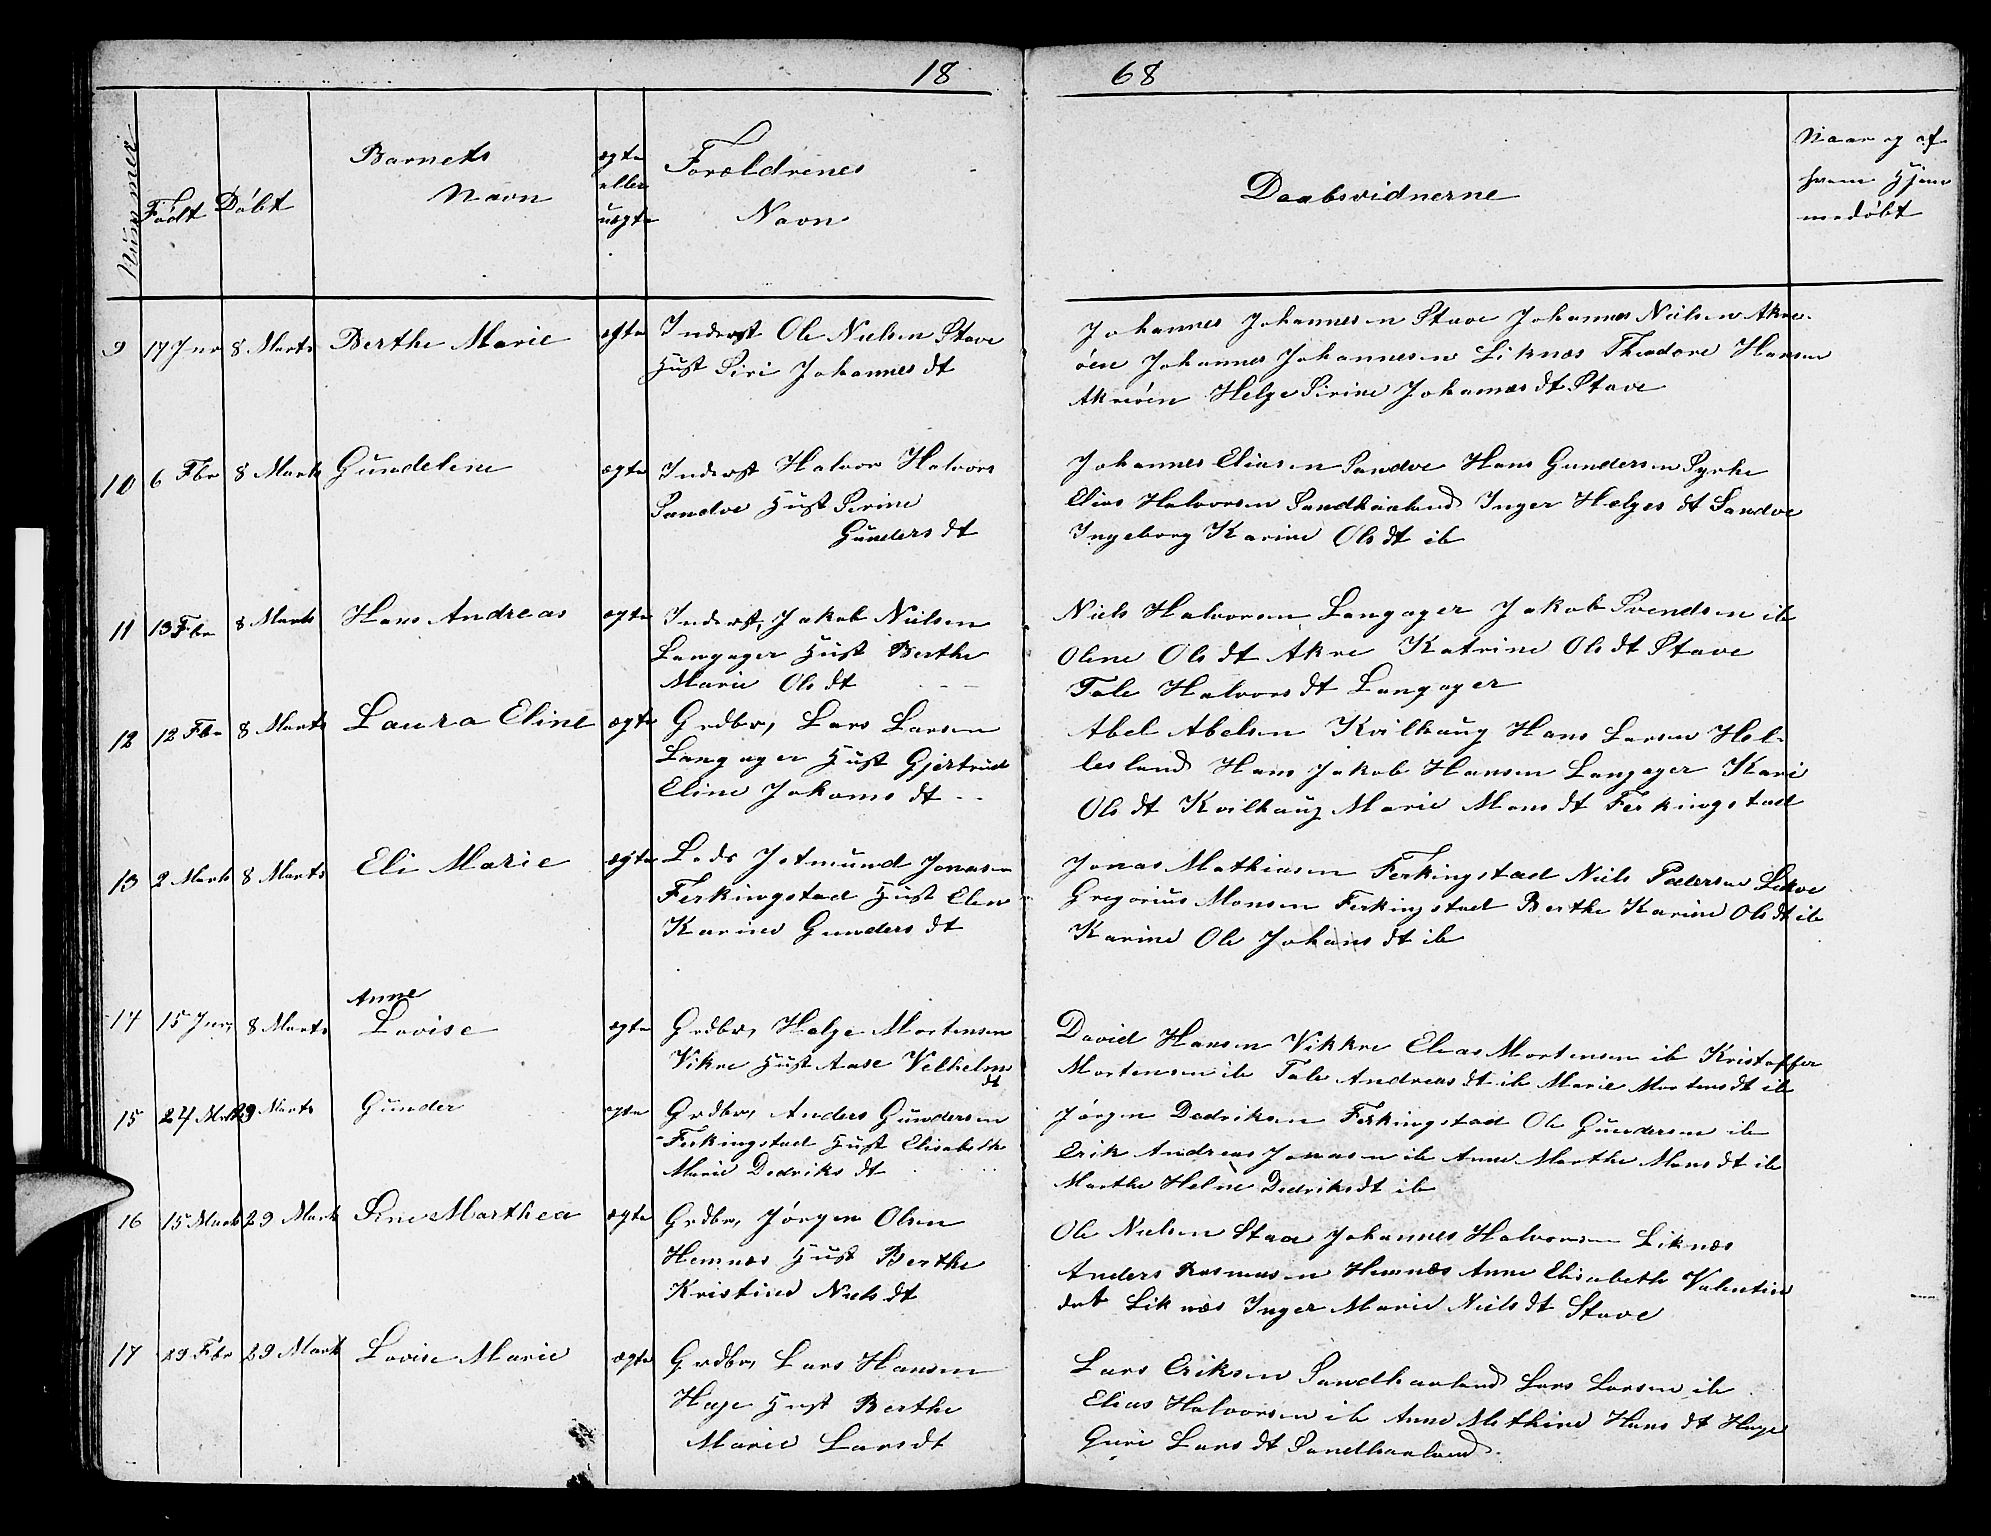 18 68
Nummer Født Døbt Barnets Navn ægte eller uægte Forældrenes Navn Daabsvidnerne Naar og af hvem Hjemmedøbt
9 17 Jnr 8 Marts Berthe Marie ægte Inderst Ole Nielsen Stave
Hust Siri Johannesdt
Johannes Johannesen Stave Johannes Nielsen Akre-
øen Johannes Johannesen Liknæs Theodore Hansen
Akreøen Helge Sirine Johannesdt Stave
10 6 Fbr 8 Marts Gundeline ægte Inderst Halvor Halvors
Sandve Hust Serine
Gundersdt
Johannes Eliasen Sandve Hans Gundersen Syrke
Elias Halvorsen Sandhaaland Inger Helgesdt Sandve
Ingeborg Karine Olsdt ib
11 13 Fbr 8 Marts Hans Andreas ægte Inderst, Jakob Nielsen
Langager Hust Berthe
Marie Olsdt
Niels Halvorsen Langager Jakob Svendsen ib
Oline Olsdt Akre Katrine Olsdt Stave
Tale Halvorsdt Langager
12 12 Fbr 8 Marts Laura Eline ægte Grdbr, Lars Larsen
Langager Hust Gjertrud
Eline Johansdt
Abel Abelsen Kvilhaug Hans Larsen Hel-
lesland Hans Jakob Hansen Langager Kari
Olsdt Kvilhaug Marie Monsdt Ferkingstad
13 2 Marts 8 Marts Eli Marie ægte Lods Jetmund Jonasen
Ferkingstad Hust Elen
Karine Gundersdt
Jonas Mathiasen Ferkingstad Niels Pedersen
Gregorius Monsen Ferkingstad Berthe Karine Olsdt ib
Karine Ole Johansdt ib
14 15 Jnr, 8 Marts Anne
Lovise ægte Grdbr, Helge Mortensen
Vikre Hust Aase Velhelm
dt
David Hansen Vikkre Elias Mortensen ib Kristoffer
Mortensen ib Tale Andreasdt ib Marie Mortensdt ib
15 24 Marts 29 Marts Gunder ægte Grdbr, Anders Gundersen
Ferkingstad Hust Elisabeth
Marie Dedriksdt
Jørgen Dedriksen Ferkingstad Ole Gundersen ib
Erik Andreas Jonasen ib Anne Marthe Monsdt ib
Marthe Heline Dedriksdt ib
16 15 Marts 29 Marts Sine Marthea ægte Grdbr, Jørgen Olsen
Hemnæs Hust Berthe
Kristine Nielsdt
Ole Nielsen Stave Johannes Halvorsen Liknæs
Anders Rasmusen Hemnæs Anne Elisabeth Valentin
dat Liknæs Inger Marie Nielsdt Stave
17 29 Fbr 29 Marts Lovise Marie ægte Grdbr, Lars Hansen
Hage Hust Berthe
Marie Larsdt
Lars Eriksen Sandhaaland Lars Larsen ib
Elias Halvorsen ib Anne Mathine Hansdt Hage
Guri Larsdt Sandhaaland